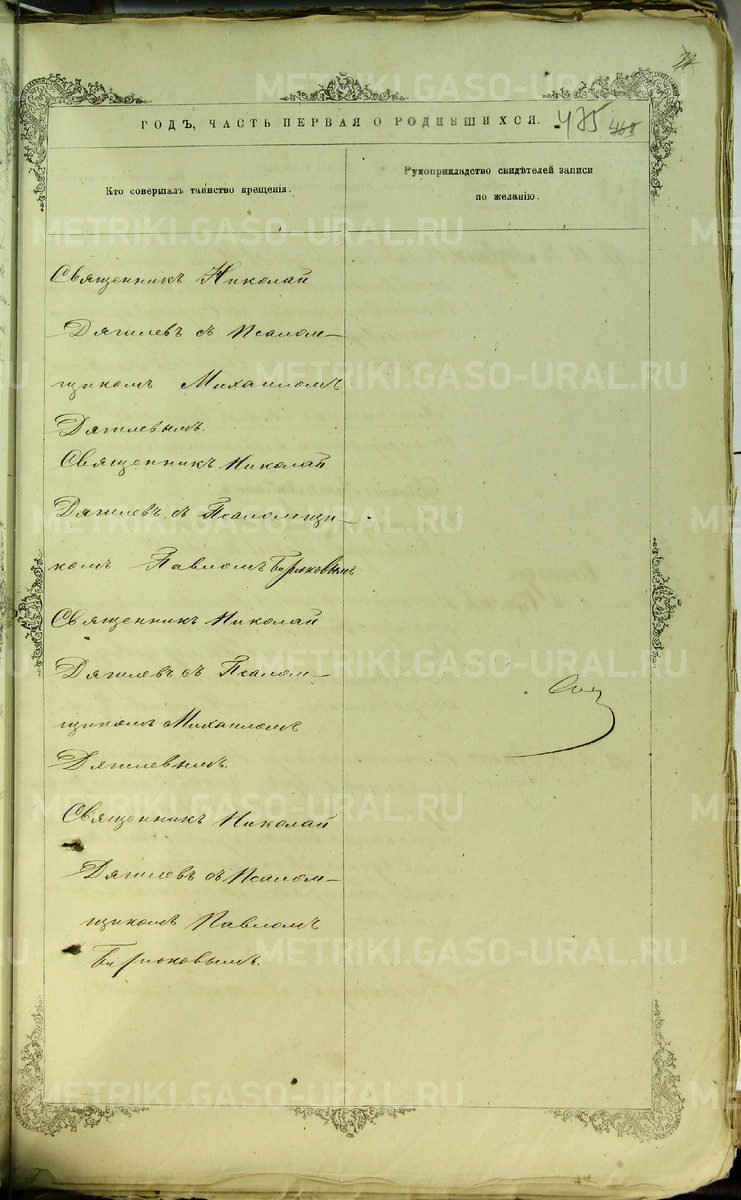 ГОДЪ, ЧАСТЬ ПЕРВАЯ О РОДИВШИХСЯ. 475
Кто совершалъ таинство крещенія.
Рукоприкладство свидѣтелей записи
по желанію.
Священникъ Николай
Дягилевъ съ Псалом-
щикомъ Михаиломъ
Дягилевымъ.
Священникъ Николай
Дягилевъ съ Псаломщи-
комъ Павломъ Бирюковымъ
Священникъ Николай
Дягилевъ съ Псалом-
щикомъ Михаиломъ
Дягилевымъ.
Священникъ Николай
Дягилевъ съ Псалом-
щикомъ Павломъ
Бирюковымъ.
METRIKI.GASO-URAL.RU